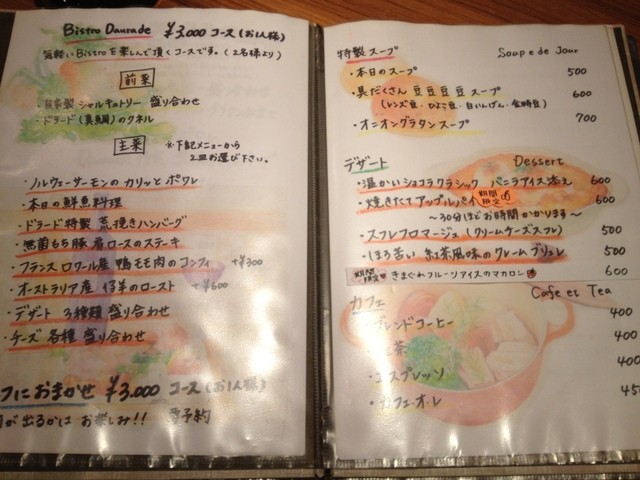 Bistro Daurade ¥3,000 コース (お1人様)
気軽にBistroを楽しんで頂くコースです。(2名様より)
前菜
・自家製 シャルキュトリー 盛り合わせ
・ドラード(真鯛)のクネル
主菜
※下記メニューから
2皿お選び下さい。
・ノルウェーサーモンの カリッと ポワレ
・本日の鮮魚料理
・ドラード特製 荒挽きハンバーグ
・無菌もち豚 肩ロースのステーキ
・フランス ロワール産 鴨モモ肉のコンフィ +¥300
・オーストラリア産 仔羊のロースト +¥600
・デザート 3種類 盛り合わせ
・チーズ 各種 盛り合わせ
フにおまかせ ¥3,000 コース (お1人様)
が出るかは お楽しみ!! 要予約
特製スープ Soupe de Jour
・本日のスープ 500
・具だくさん 豆豆豆豆 スープ 600
(レンズ豆・ひよこ豆・白いんげん・金時豆)
・オニオングラタンスープ 700
デザート Dessert
・温かいショコラクラシック バニラアイス添え 600
・焼きたてアップルパイ 期間限定 600
〜30分ほどお時間かかります〜
・スフレフロマージュ (クリームチーズスフレ) 500
・ほろ苦い 紅茶風味の クレームブリュレ 500
期間限定 きまぐれフルーツアイスのマカロン 600
カフェ Cafe et Tea
・ブレンドコーヒー 400
紅茶 400
・エスプレッソ 400
・カフェ・オ・レ 45